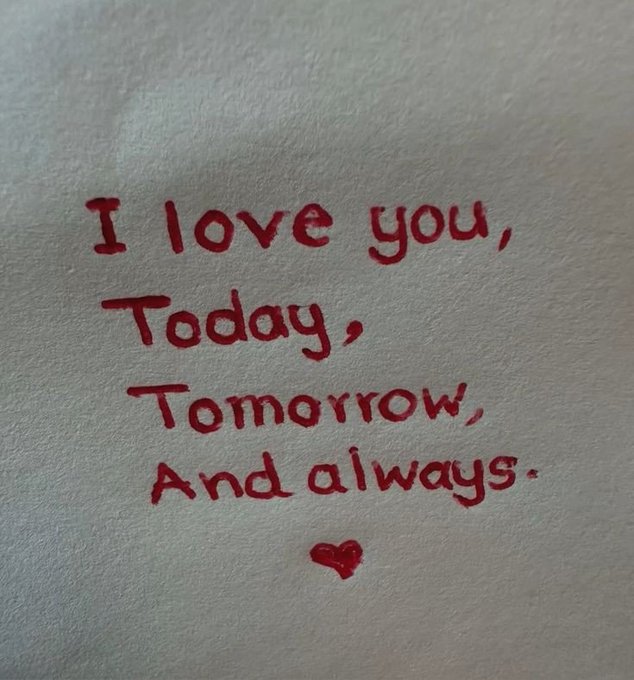 I love you,
Today,
Tomorrow,
And always.